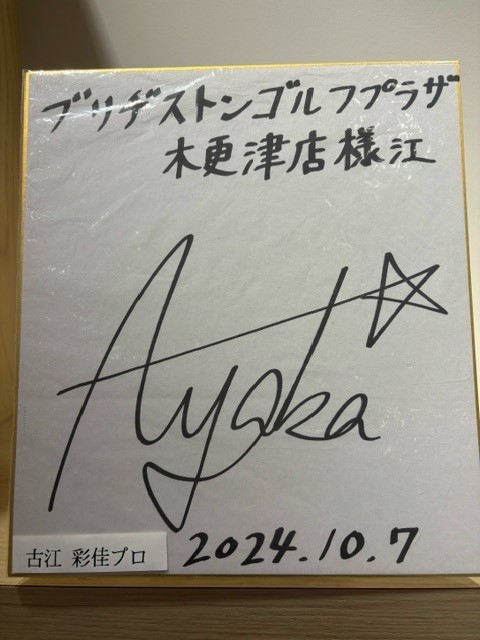 ブリヂストンゴルフプラザ
木更津店様江
Ayaka
古江 彩佳プロ
2024.10.7